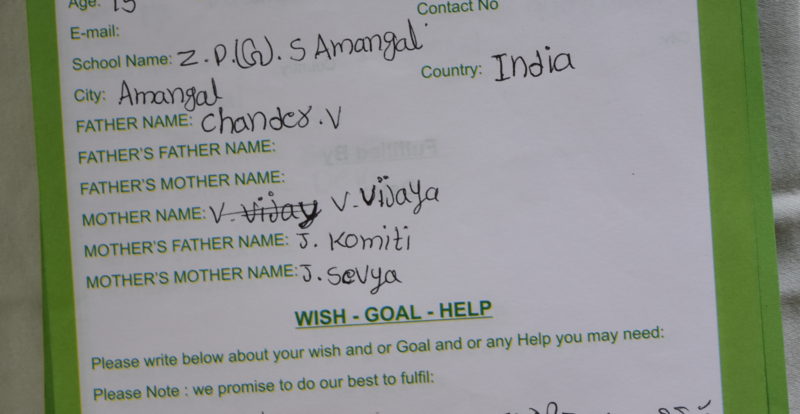 Age: 15
Contact No
E-mail:
School Name: Z.P.(G).S Amangal
City: Amangal
Country: India
FATHER NAME: Chander.V
FATHER'S FATHER NAME:
FATHER'S MOTHER NAME:
MOTHER NAME: V. Vijay V. Vijaya
MOTHER'S FATHER NAME: J. Komiti
MOTHER'S MOTHER NAME: J. Sevya
WISH - GOAL - HELP
Please write below about your wish and or Goal and or any Help you may need:
Please Note : we promise to do our best to fulfil: